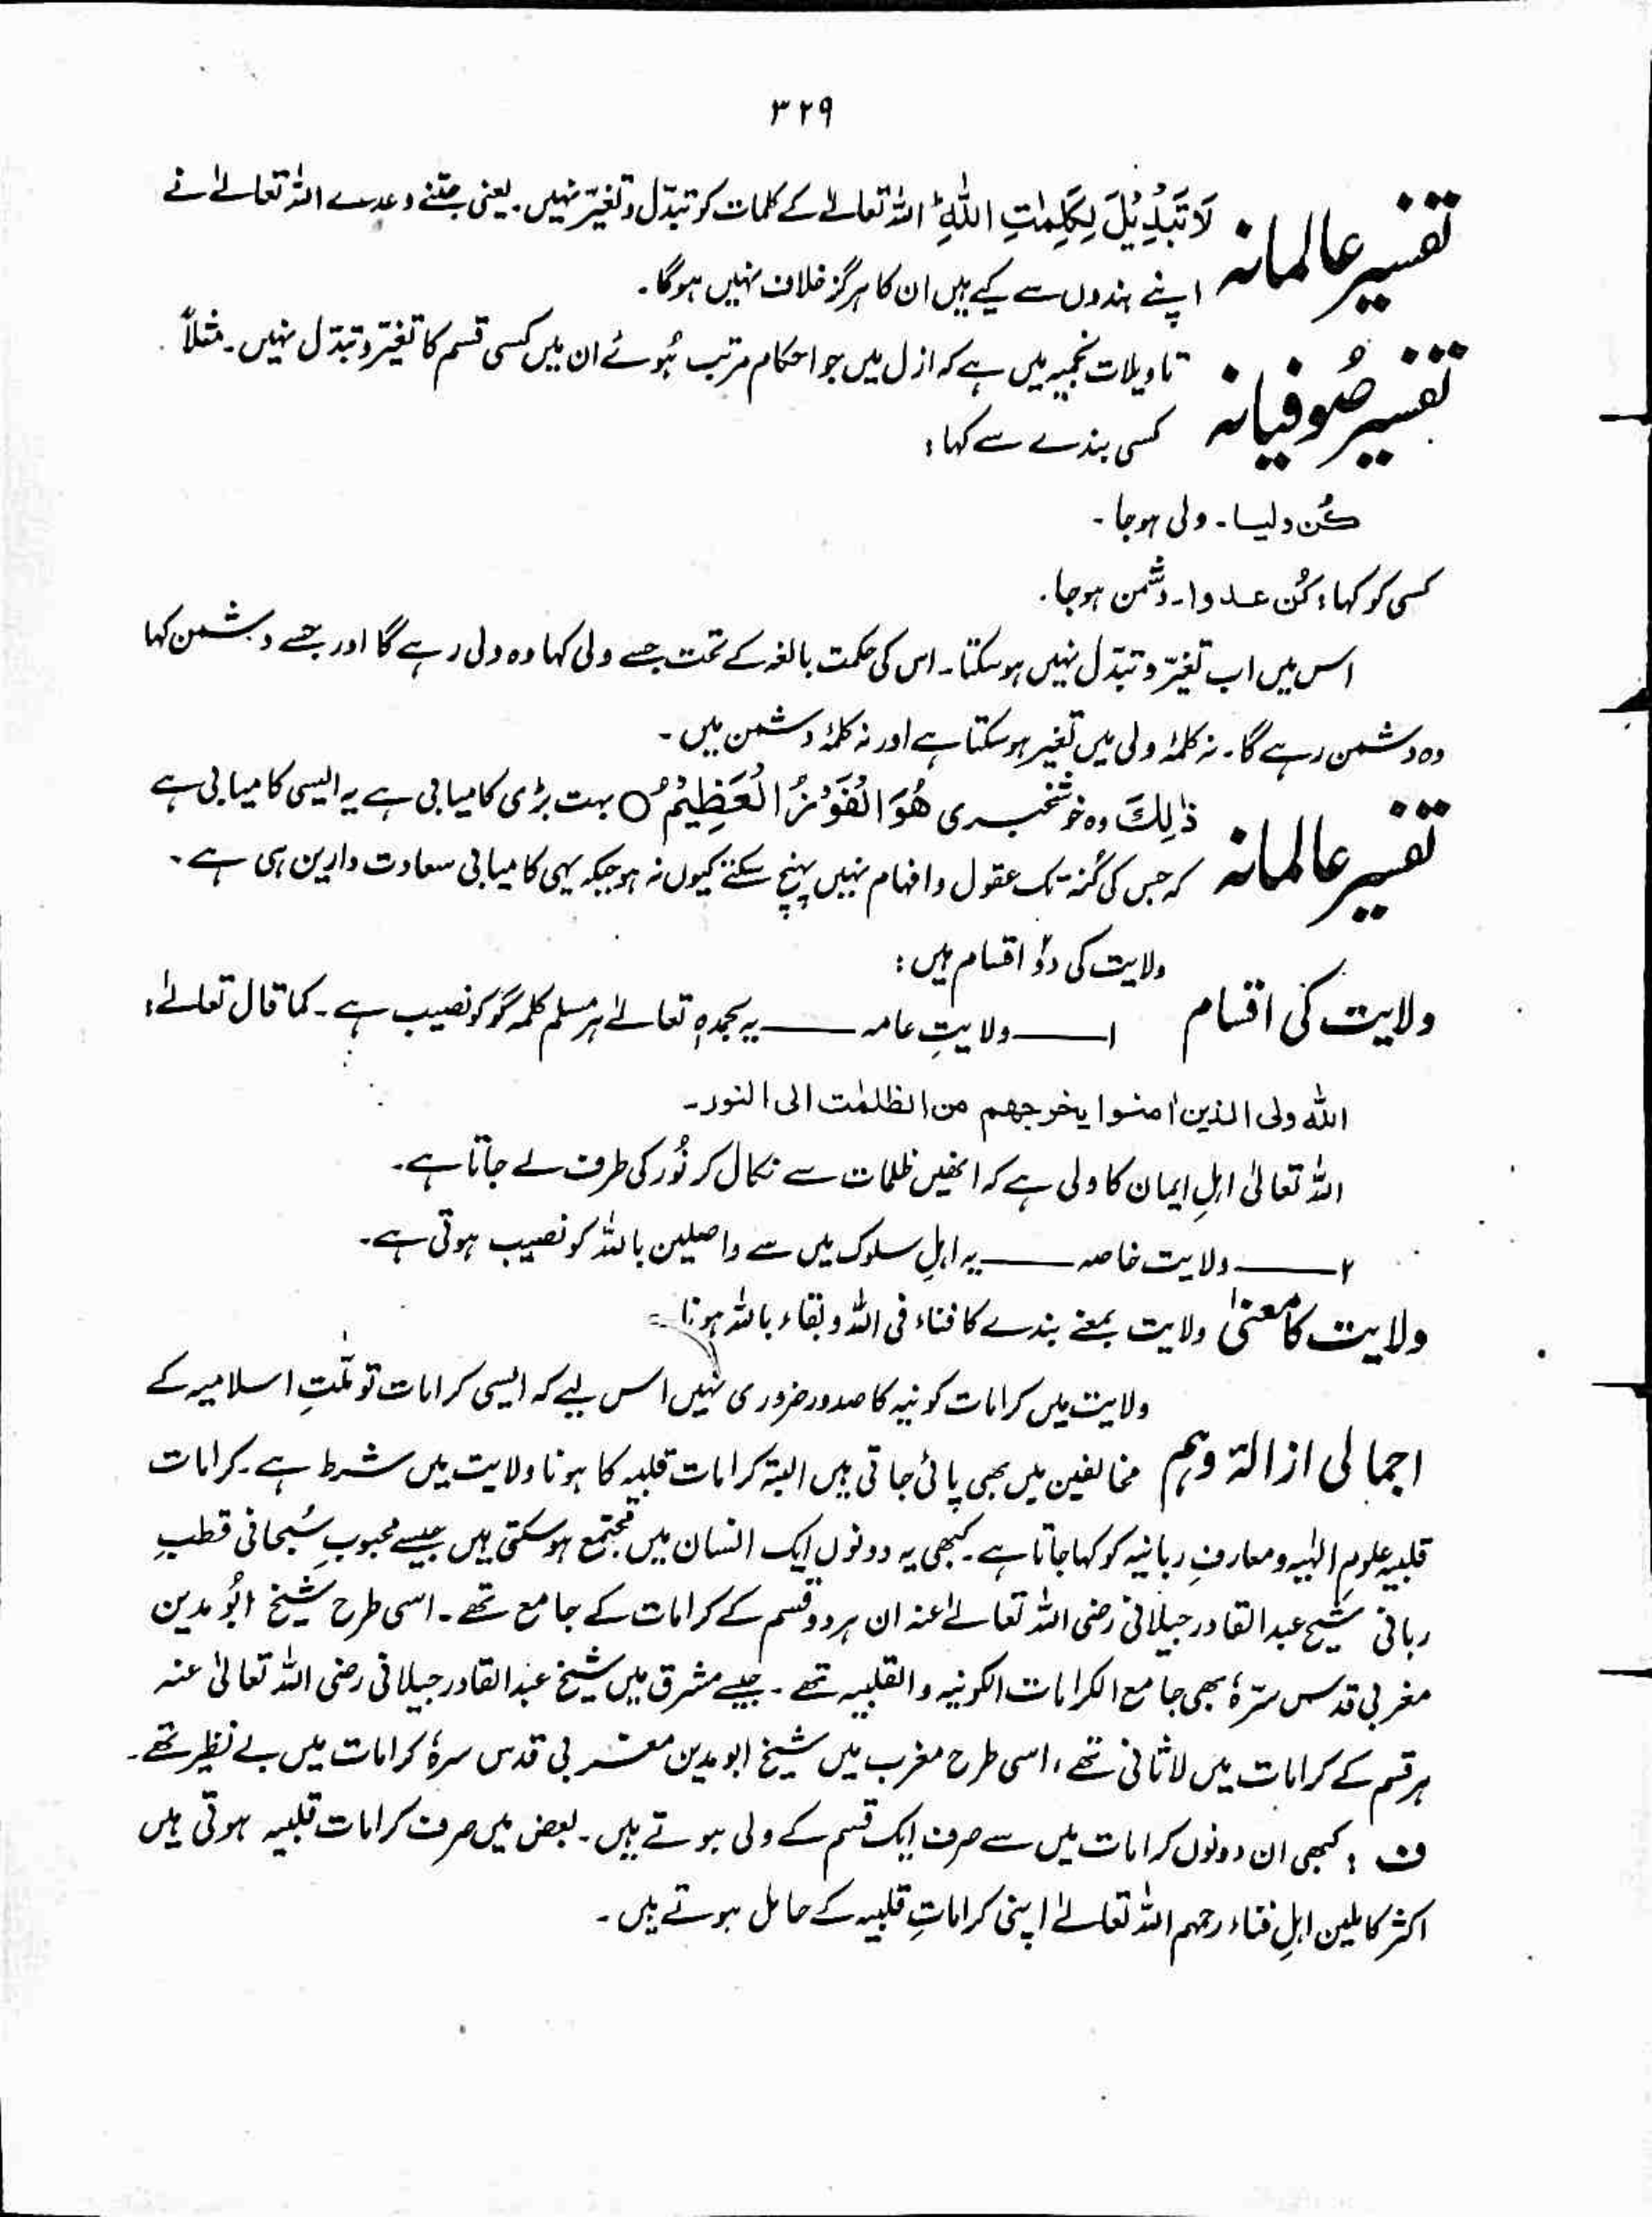 ۳۲۹
تفسیر عالمانہ
لَا تَبْدِیْلَ لِکَلِمٰتِ اللّٰہِ ؕ اللہ تعالےٰ کے کلمات کو تبدّل و تغیّر نہیں۔ یعنی جتنے وعدے اللہ تعالےٰ نے
اپنے بندوں سے کیے ہیں ان کا ہرگز خلاف نہیں ہوگا۔
تفسیر صُوفیانہ
تاویلات نجمیہ میں ہے کہ ازل میں جو احکام مرتب ہُوئے ان میں کسی قسم کا تغیّر و تبدّل نہیں۔ مثلاً
کسی بندے سے کہا:
کُن ولیا۔ ولی ہوجا۔
کسی کو کہا: کُن عدوا۔ دشمن ہوجا۔
اس میں اب تغیّر و تبدّل نہیں ہوسکتا۔ اس کی حکمت بالغہ کے تحت جسے ولی کہا وہ ولی رہے گا اور جسے دشمن کہا
وہ دشمن رہے گا۔ نہ کلمۂ ولی میں تغیر ہوسکتا ہے اور نہ کلمۂ دشمن میں۔
تفسیر عالمانہ
ذٰلِکَ وہ خوشخبری ھُوَ الْفَوْزُ الْعَظِیْمُ ○ بہت بڑی کامیابی ہے یہ ایسی کامیابی ہے
کہ جس کی کُنہ تک عقول و افہام نہیں پہنچ سکتے کیوں نہ ہو جبکہ یہی کامیابی سعادت دارین ہی ہے۔
ولایت کی اقسام
ولایت کی دو اقسام ہیں:
۱ـــــ ولایتِ عامہ ـــــ یہ بحمدہٖ تعالےٰ ہر مسلم کلمہ گو کو نصیب ہے۔ کما قال تعالےٰ:
اللہ ولی الذین اٰمنوا یخرجھم من الظلمٰت الی النور۔
اللہ تعالیٰ اہلِ ایمان کا ولی ہے کہ انھیں ظلمات سے نکال کر نُور کی طرف لے جاتا ہے۔
۲ـــــ ولایت خاصہ ـــــ یہ اہلِ سلوک میں سے واصلین باللہ کو نصیب ہوتی ہے۔
ولایت کا معنیٰ ولایت بمعنے بندے کا فناء فی اللہ و بقاء باللہ ہونا۔
اجمالی ازالۂ وہم
ولایت میں کرامات کونیہ کا صدور ضروری نہیں اس لیے کہ ایسی کرامات تو ملّتِ اسلامیہ کے
مخالفین میں بھی پائی جاتی ہیں البتہ کرامات قلبیہ کا ہونا ولایت میں شرط ہے۔ کرامات
قلبیہ علومِ الٰہیہ و معارفِ ربانیہ کو کہا جاتا ہے۔ کبھی یہ دونوں ایک انسان میں مجتمع ہوسکتی ہیں جیسے محبوبِ سُبحانی قطبِ
ربانی شیخ عبدالقادر جیلانی رضی اللہ تعالےٰ عنہ ان ہر دو قسم کے کرامات کے جامع تھے۔ اسی طرح شیخ ابُو مدین
مغربی قدس سرّہٗ بھی جامع الکرامات الکونیہ والقلبیہ تھے۔ جیسے مشرق میں شیخ عبدالقادر جیلانی رضی اللہ تعالیٰ عنہ
ہر قسم کے کرامات میں لاثانی تھے، اسی طرح مغرب میں شیخ ابو مدین مغربی قدس سرہٗ کرامات میں بے نظیر تھے۔
ف : کبھی ان دونوں کرامات میں سے صرف ایک قسم کے ولی ہوتے ہیں۔ بعض میں صرف کرامات قلبیہ ہوتی ہیں
اکثر کاملین اہلِ فناء رحمہم اللہ تعالےٰ اپنی کراماتِ قلبیہ کے حامل ہوتے ہیں۔